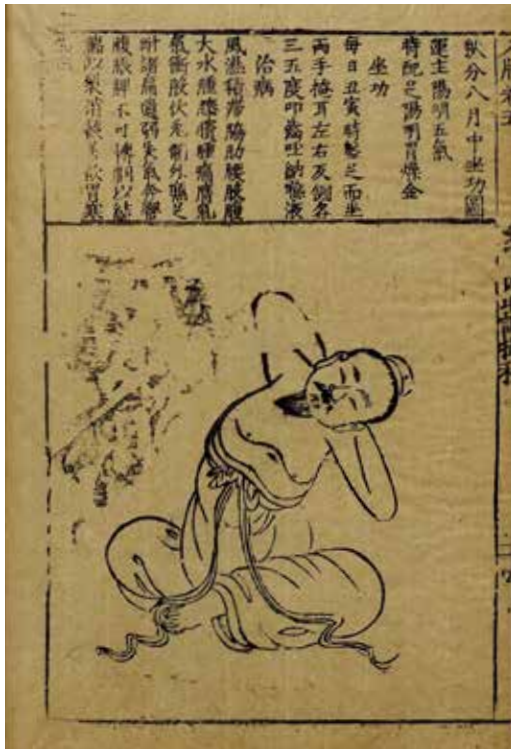 秋分八月中坐功圖
運主陽明五氣
時配足陽明胃燥金
坐功
每日丑寅時盤足而坐
兩手掩耳左右反側各
三五度叩齒吐納嚥液
治病
風濕積滯脇肋腰股腹
大水腫膝臏腫痛膺乳
氣衝股伏兔䯒外廉足
跗諸痛遺溺失氣奔響
腹脹髀不可轉膕以結
腨似裂消穀善飲胃寒
喘滿